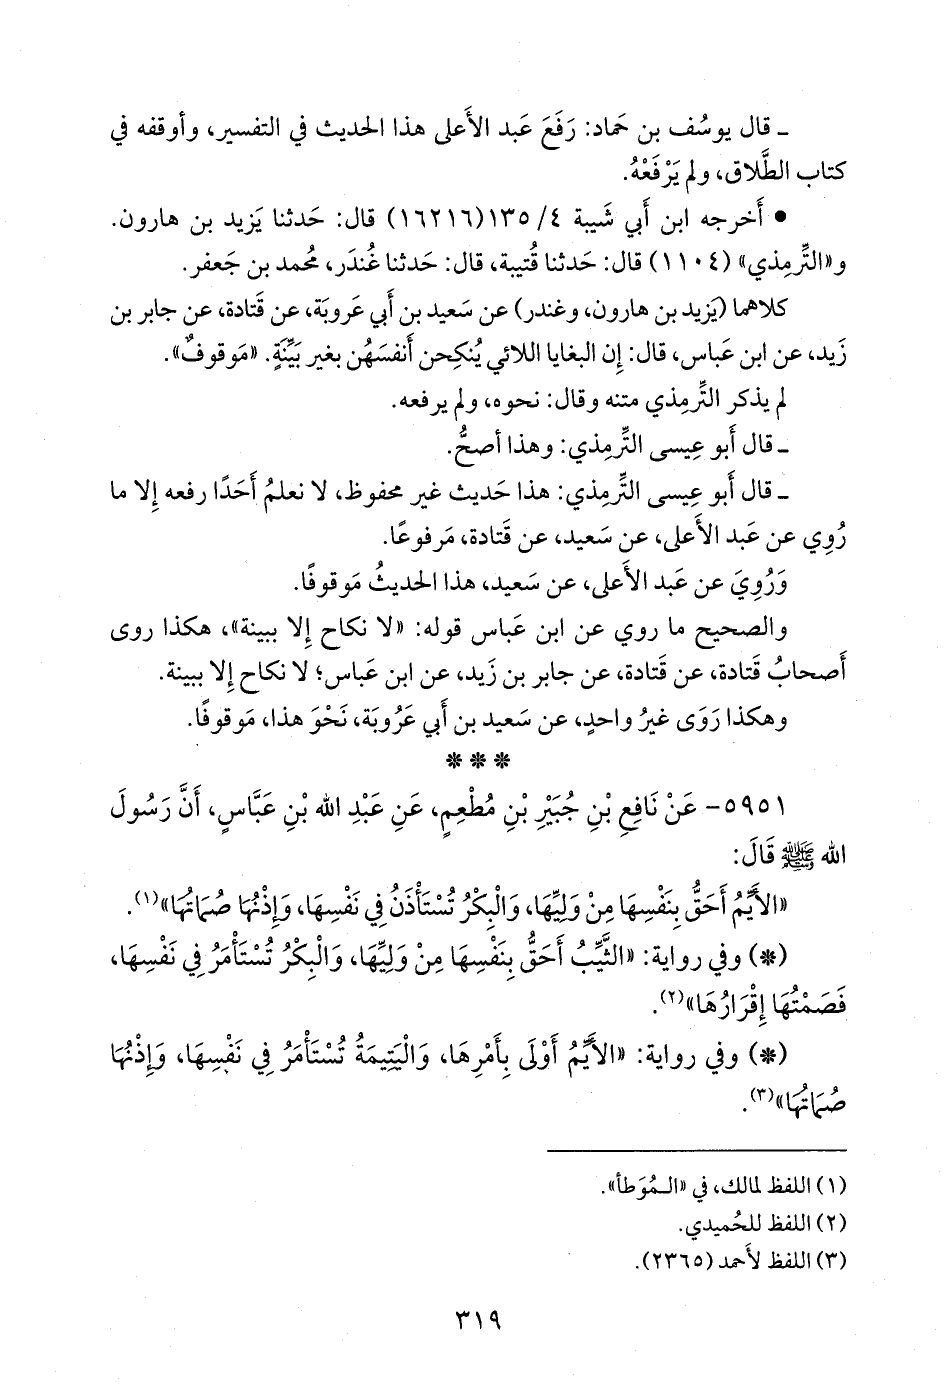 ـ قال يوسُف بن حماد: رَفَعَ عَبد الأَعلى هذا الحديث في التفسير، وأوقفه في
كتاب الطَّلاق، ولم يَرْفَعْهُ.
• أَخرجه ابن أَبي شَيبة ٤/ ١٣٥(١٦٢١٦) قال: حَدثنا يَزيد بن هارون.
و«التِّرمِذي» (١١٠٤) قال: حَدثنا قُتيبة، قال: حَدثنا غُندَر، محُمد بن جَعفر.
كلاهما (يَزيد بن هارون، وغندر) عن سَعيد بن أَبي عَروبَة، عن قَتادة، عن جابر بن
زَيد، عن ابن عَباس، قال: إِن البغايا اللائي يُنكِحن أَنفسَهُن بغير بَيِّنَةٍ. «مَوقوفٌ».
لم يذكر التِّرمِذي متنه وقال: نحوه، ولم يرفعه.
ـ قال أَبو عِيسى التِّرمِذي: وهذا أصحُّ.
ـ قال أَبو عِيسى التِّرمِذي: هذا حَديث غير محفوظ، لا نعلمُ أَحَدًا رفعه إِلا ما
رُوِي عن عَبد الأَعلى، عن سَعيد، عن قَتادة، مَرفوعًا.
وَرُوِيَ عن عَبد الأَعلى، عن سَعيد، هذا الحديثُ مَوقوفًا.
والصحيح ما روي عن ابن عَباس قوله: «لا نكاح إِلا ببينة»، هكذا روى
أَصحابُ قَتادة، عن قَتادة، عن جابر بن زَيد، عن ابن عَباس؛ لا نكاح إِلا ببينة.
وهكذا رَوَى غيرُ واحدٍ، عن سَعيد بن أَبي عَرُوبَة، نَحْوَ هذا، مَوقوفًا.
* * *
٥٩٥١- عَنْ نَافِعِ بْنِ جُبَيْرِ بْنِ مُطْعِمٍ، عَنِ عَبْدِ الله بْنِ عَبَّاسٍ، أَنَّ رَسُولَ
الله ﷺ قَالَ:
«الأَيِّمُ أَحَقُّ بِنَفْسِهَا مِنْ وَلِيِّهَا، وَالْبِكْرُ تُسْتَأْذَنُ فِي نَفْسِهَا، وَإِذْنُهَا صُمَاتُهَا»(١).
(*) وفي رواية: «الثَّيِّبُ أَحَقُّ بِنَفْسِهَا مِنْ وَلِيِّهَا، وَالْبِكْرُ تُسْتَأْمَرُ فِي نَفْسِهَا،
فَصَمْتُهَا إِقْرَارُهَا»(٢).
(*) وفي رواية: «الأَيِّمُ أَوْلَى بِأَمْرِهَا، وَالْيَتِيمَةُ تُسْتَأْمَرُ فِي نَفْسِهَا، وَإِذْنُهَا
صُمَاتُهَا»(٣).
(١) اللفظ لمالك، في «الـمُوَطأ».
(٢) اللفظ للحُميدي.
(٣) اللفظ لأَحمد (٢٣٦٥).
٣١٩